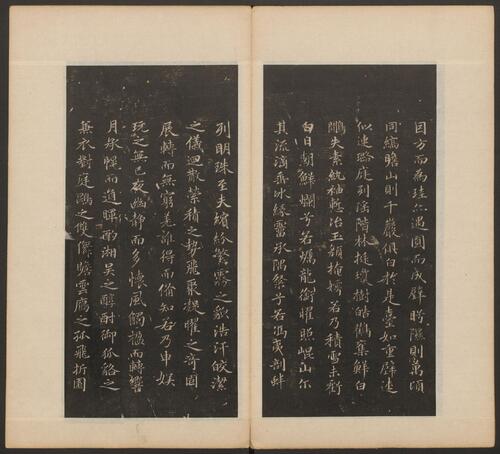 因方而為珪亦遇圓而成璧眄隰則萬頃
同縞瞻山則千巖俱白於是臺如重璧逵
似連璐庭列瑤階林挺瓊樹皓鶴奪鮮白
鷴失素紈袖慙冶玉顏掩嫮若乃積雪未虧
白日朝鮮爛兮若燭龍銜曜照崐山尔
其流滴垂冰緣霤承隅粲兮若馮夷剖蚌
列明珠至夫繽紛繁霧之貌浩汗皎潔
之儀迴散縈積之勢飛聚凝曜之奇固
展轉而無窮羌難得而備知若乃申娱
玩之無已夜幽静而多懷風觸楹而轉響
月承幌而通暉酌湘吴之醇酎御狐貉之
兼衣對庭鵾之雙儛瞻雲鴈之孤飛折園